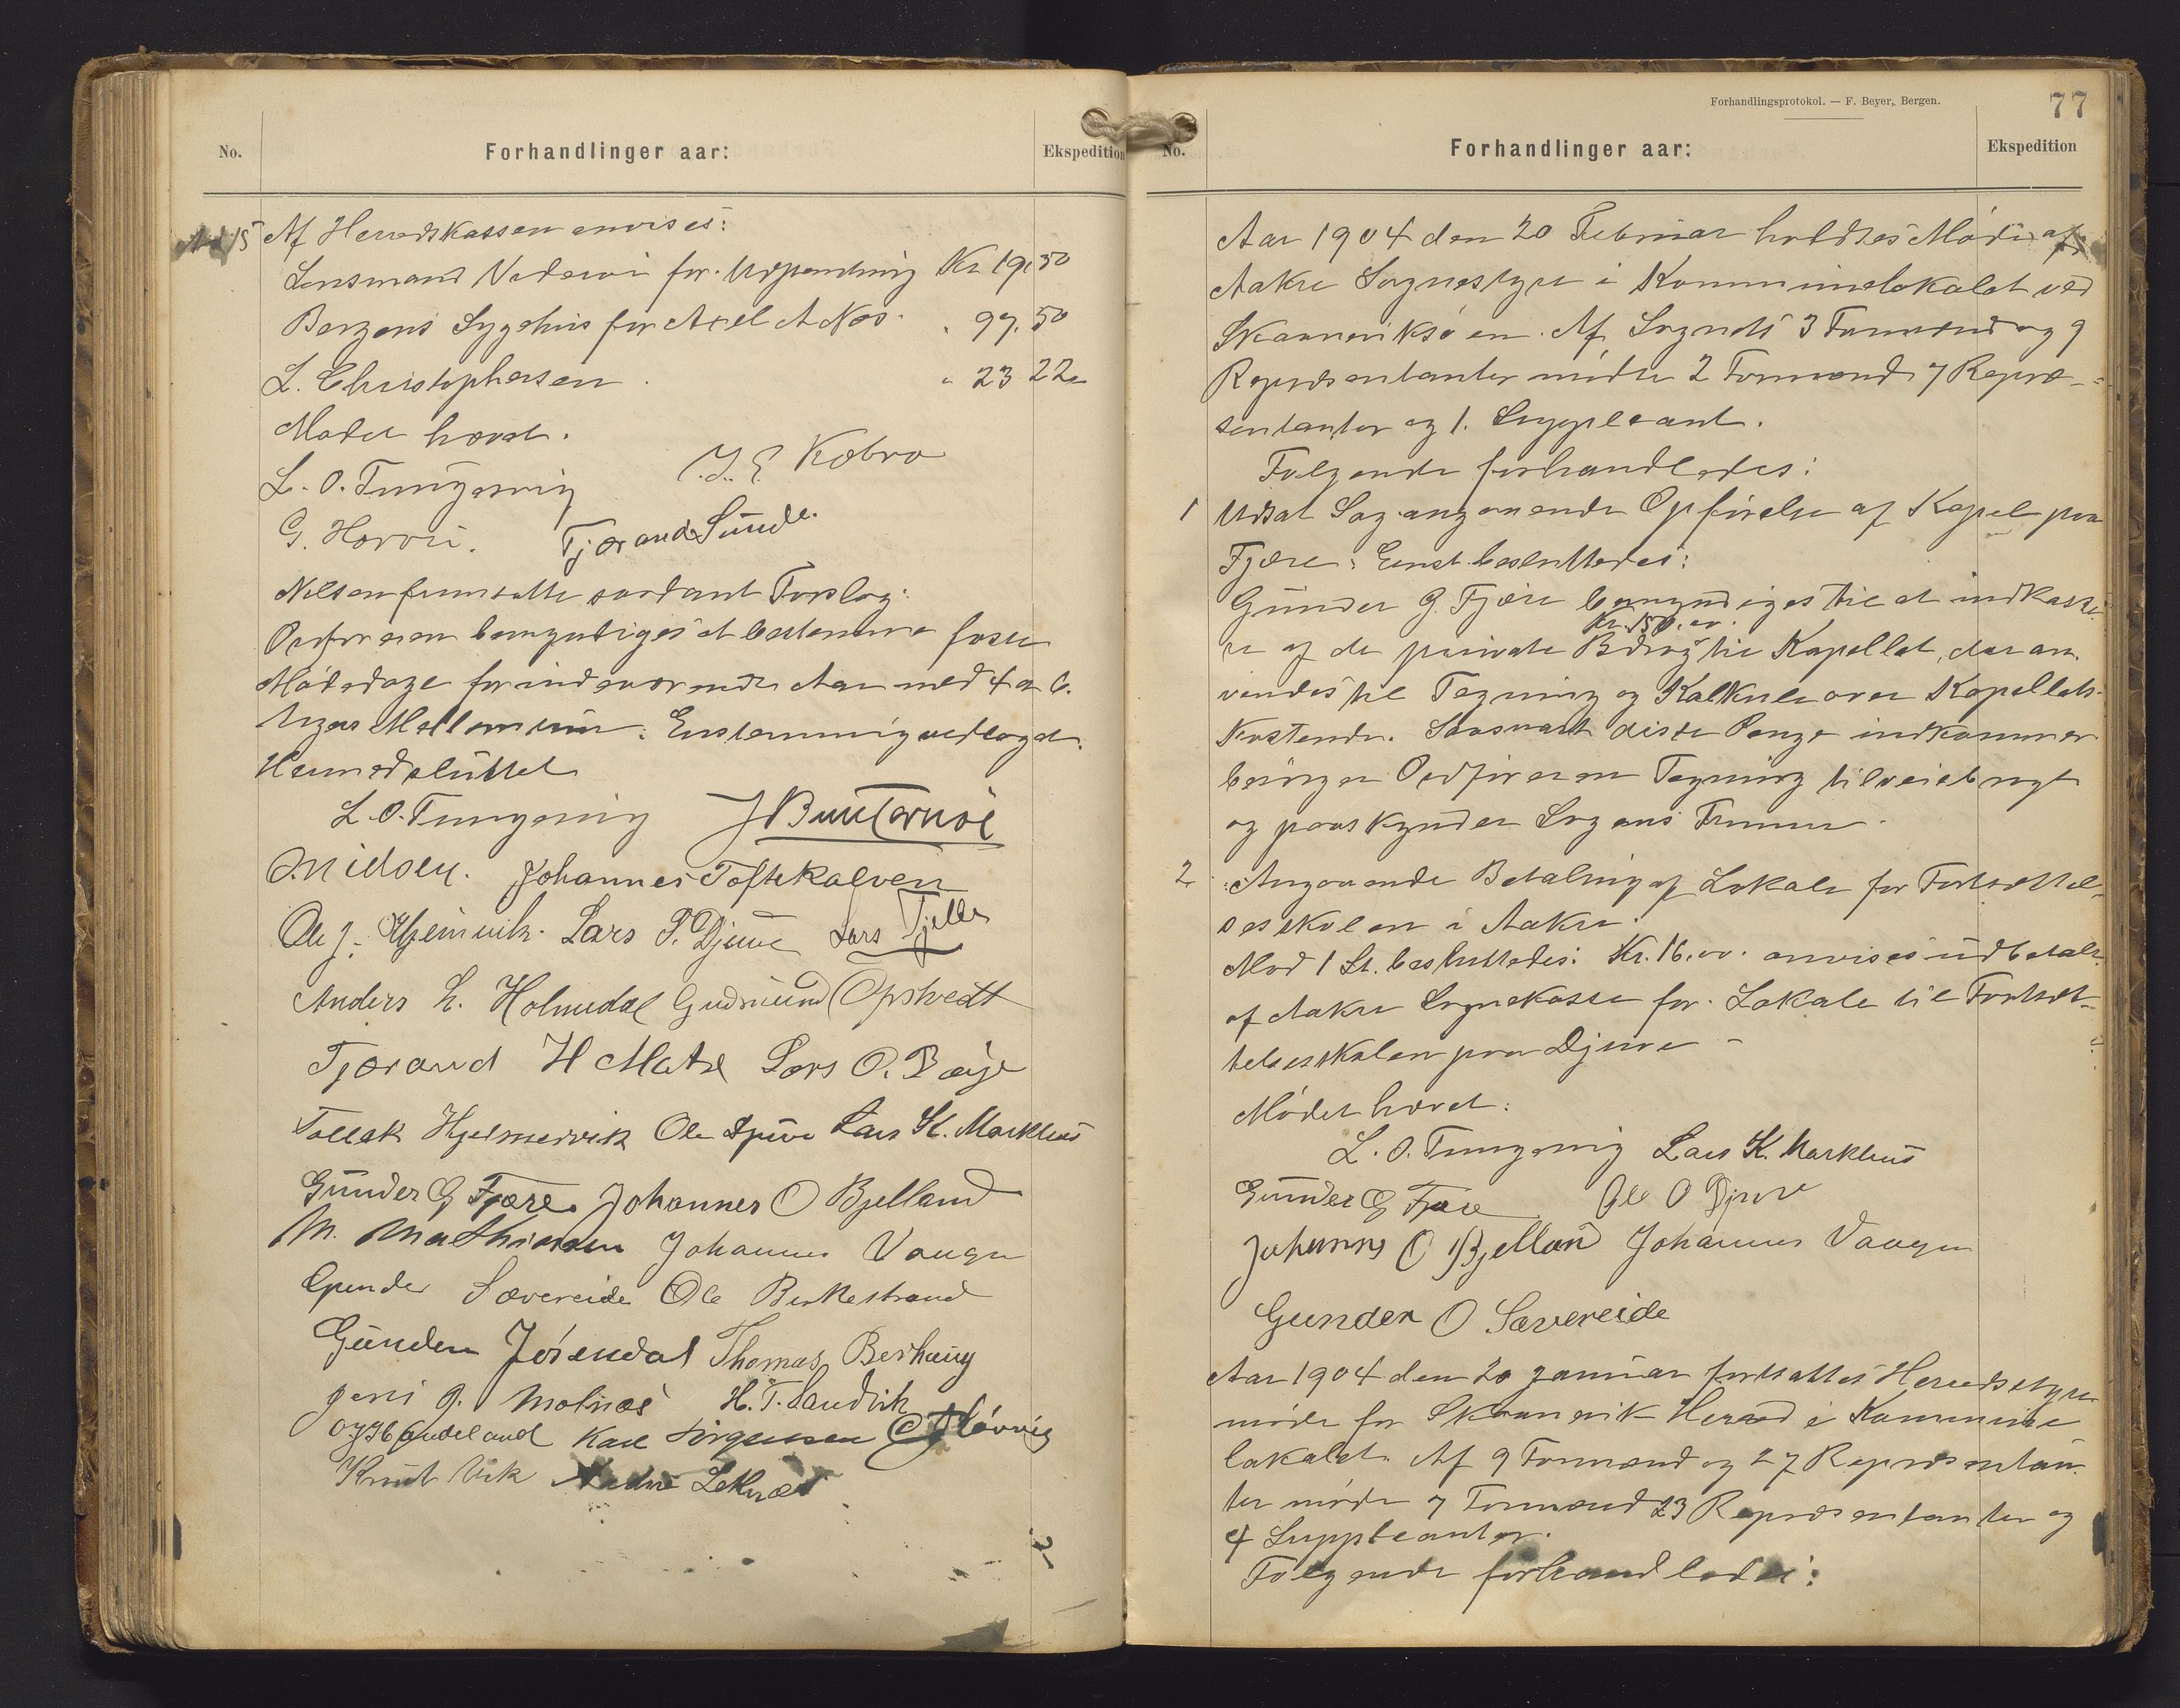 No.
Forhandlinger aar:
Ekspedition
Ad 15 Af Herredskassen anvises:
Lensmand Vaderøi for Udpantning Kr 19,50
Bergens Sygehus for Axel A Næs " 97,50
L. Christophersen " 23 22
Mødet hævet.
L. O. Tungesvig J. E. Kobro
G. Horvei. Tjærand Sunde.
Nilsen fremsatte saadant Forslag:
Ordføreren bemyndiges at bestemme faste
Mødedage for indeværende Aar med 4 a 6.
Ugers Mellemrum. Enstemmig vedtaget.
Hermed sluttet
L. O. Tungesvig J Buu Ternøe
O. Nielsen. Johannes Toftekalven
Ole J. Hjemvik. Lars P. Djuve Lars Fjelle
Anders L. Holmedal Gudmund Opstvedt
Tjærand H Matre Lars O. Bøige
Tollak Hjelmervik Ole Djuve Lars K. Markhus
Gunder G Fjære. Johannes O Bjelland
M. Mathiassen Johannes Vaagen
Gunder Sævereide Ole Birkestrand
Gunder Jørendal Thomas Berhaug
Jens J. Molnæs H. T. Sandvik
Karl Jørgensen
Knut Vik Andre Leknæs
Forhandlingsprotokol. — F. Beyer, Bergen.
77
No.
Forhandlinger aar:
Ekspedition
Aar 1904 den 20 Februar holdtes Møde af
Aakre Sognestyre i Kommunelokalet ved
Skaaneviksøen. Af Sognets 3 Formænd og 9
Repræsentanter mødte 2 Formænd 7 Repræ-
sentanter og 1. Suppleant.
Følgende forhandledes:
1 Udsat Sag angaaende Opførelse af Kapel paa
Fjære: Enst. besluttedes:
Gunder G. Fjære bemyndiges til at indkasse
Kr. 150.00.
re af de private Bidrag til Kapellet, der an-
vendes til Tegning og Kalkule over Kapellets
Kostende. Saasnart disse Penge indkommer
besørger Ordføreren Tegning tilveiebragt
og paaskynder Sagens Fremme.
2 Angaaende Betaling af Lokale for Fortsættel-
sesskolen i Aakre.
Mod 1 St. besluttedes: Kr. 16.00. anvises udbetalt
af Aakre Sognekasse for Lokale til Fortsæt-
telsesskolen paa Djuve -
Mødet hævet:
L. O. Tungesvig Lars K. Markhus
Gunder G Fjære Ole O Djuve
Johannes O Bjelland Johannes Vaagen
Gunder O Sævereide
Aar 1904 den 20 Januar fortsattes Herredsstyre
møde for Skaanevik Herred i Kommune
lokalet. Af 9 Formænd og 27 Repræsentan-
ter mødte 7 Formænd 23 Repræsentanter og
4 Suppleanter.
Følgende forhandledes: